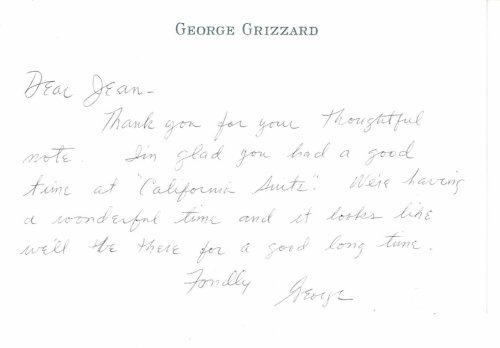 GEORGE GRIZZARD
Dear Jean-
Thank you for your thoughtful
note. I'm glad you had a good
time at "California Suite". We're having
a wonderful time and it looks like
we'll be there for a good long time.
Fondly
George